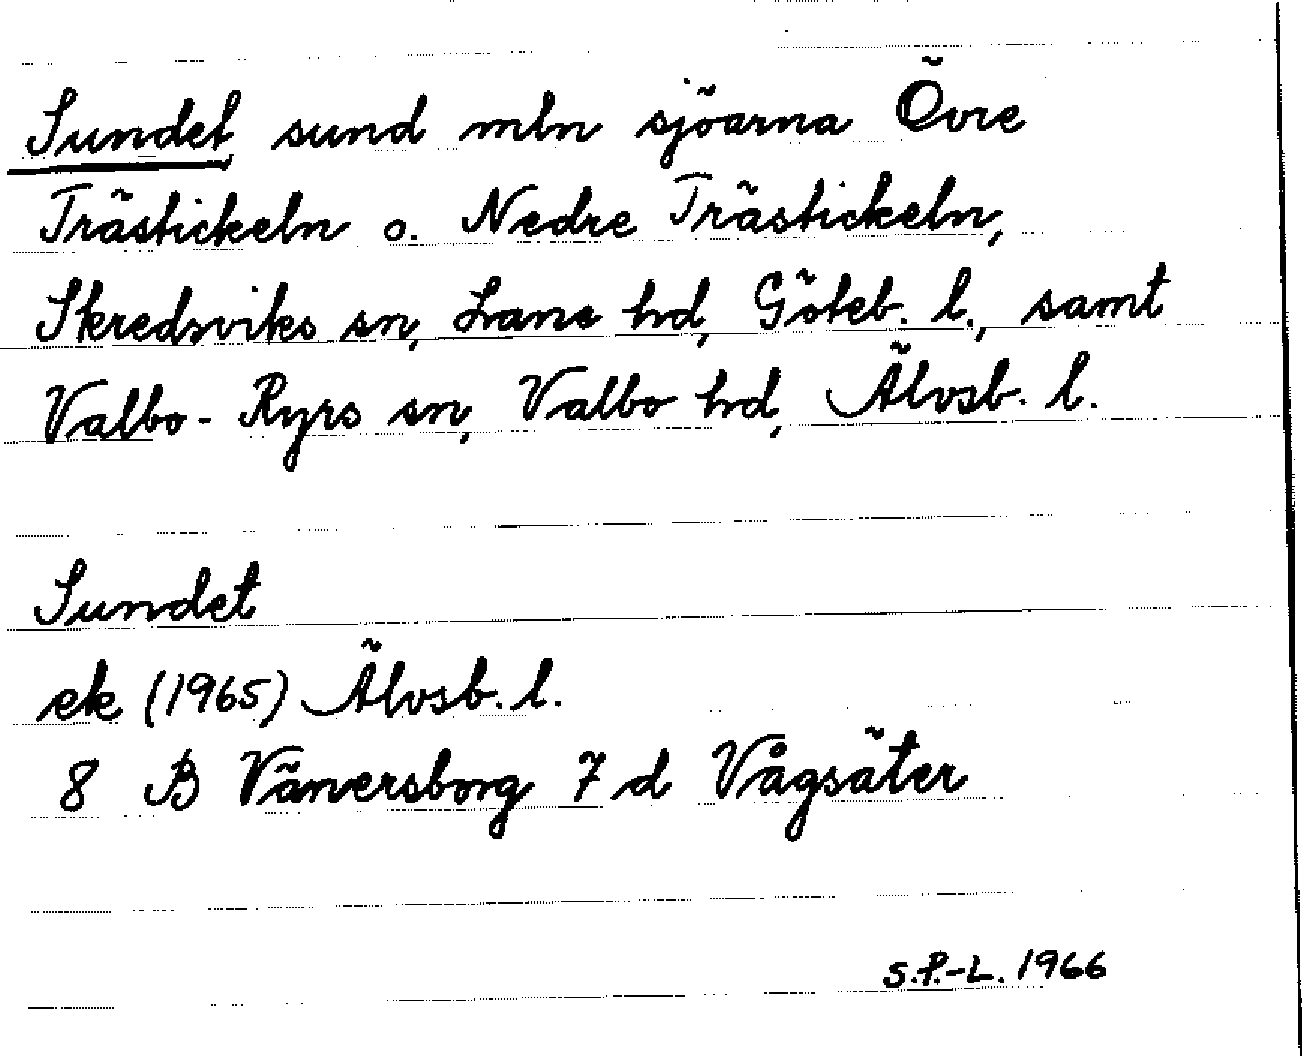 Sundet, sund mln sjöarna Övre
Trästickeln o. Nedre Trästickeln,
Skredsviks sn, Lane hd, Göteb. l., samt
Valbo-Ryrs sn, Valbo hd, Älvsb. l.
Sundet
ek (1965) Älvsb. l.
8 B Vänersborg 7 d Vågsäter
S.P.-L. 1966